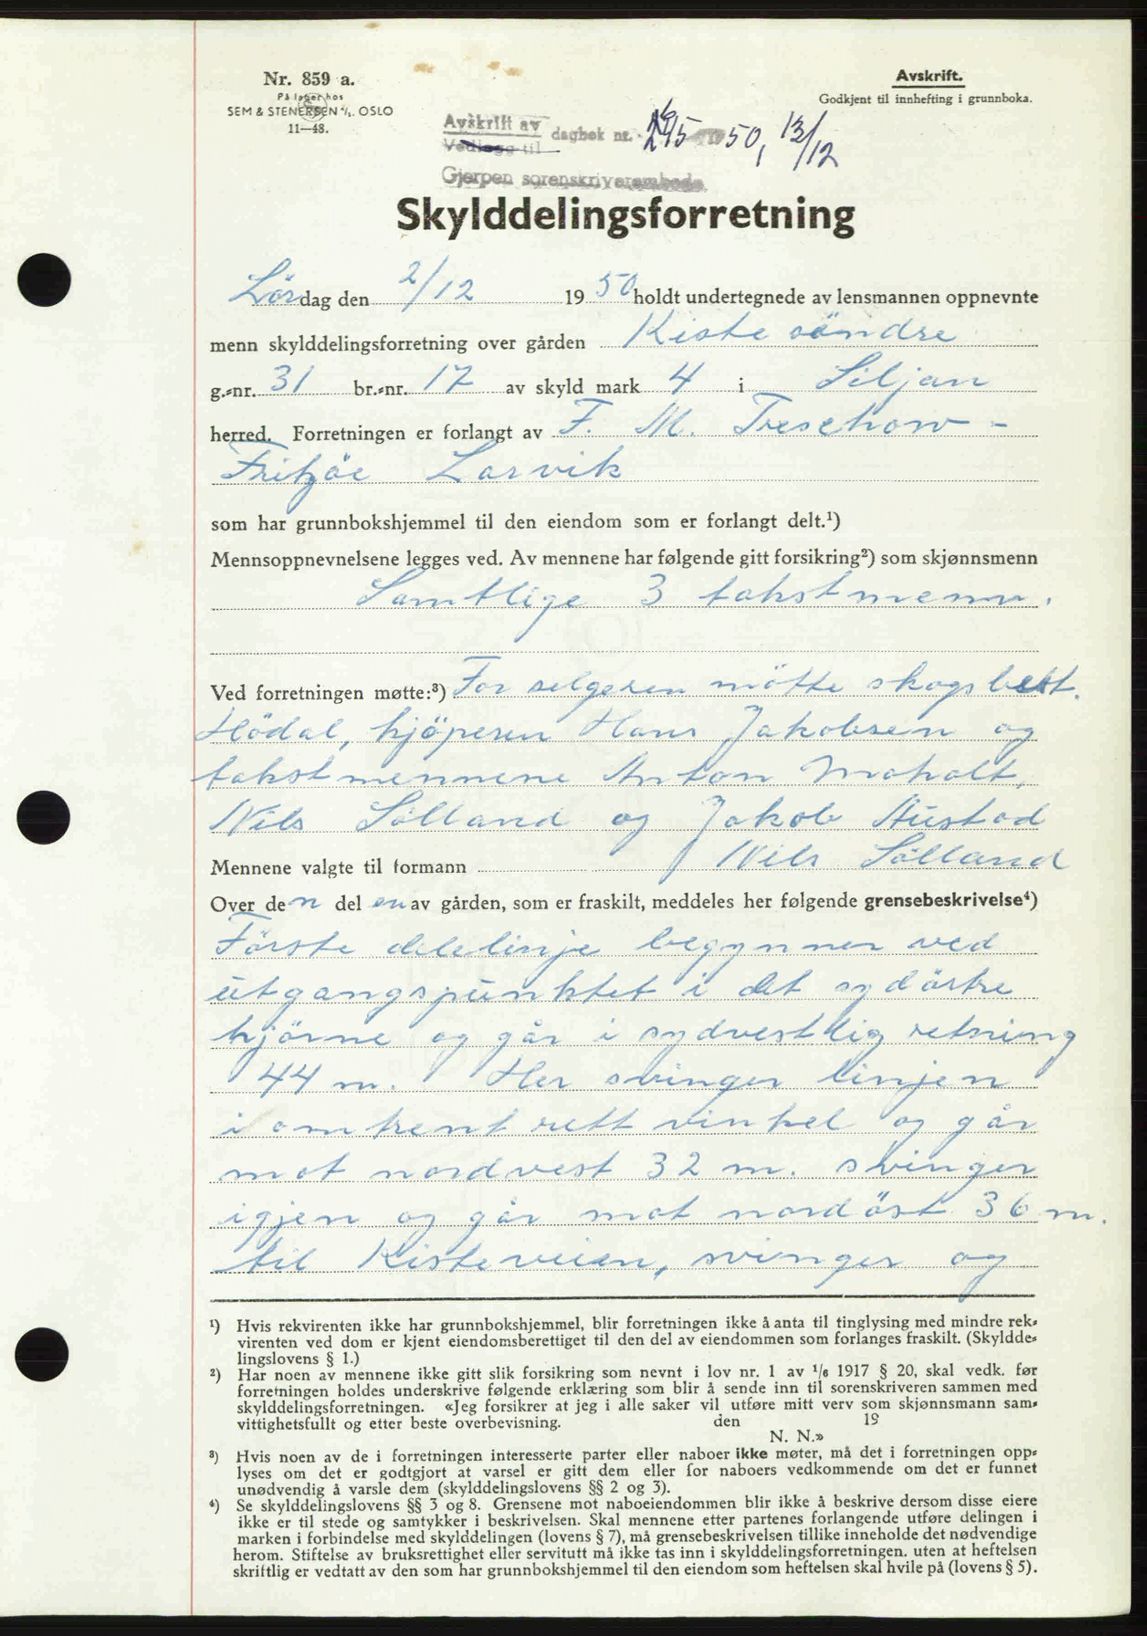 Nr. 859 a.
På lager hos
SEM & STENERSEN A/S. OSLO
11—48.
Avskrift.
Godkjent til innhefting i grunnboka.
Avskrift av
Vedlegg til
dagbok nr. 50, 13/12
Gjerpen sorenskriverembede.
Skylddelingsforretning
Lördag den 2/12 1950 holdt undertegnede av lensmannen oppnevnte
menn skylddelingsforretning over gården Kiste söndre
g.-nr. 31 br.-nr. 17 av skyld mark 4 i Siljan
herred. Forretningen er forlangt av F. M. Treschow -
Fritzöe Larvik
som har grunnbokshjemmel til den eiendom som er forlangt delt.¹)
Mennsoppnevnelsene legges ved. Av mennene har følgende gitt forsikring²) som skjønnsmenn
Samtlige 3 takstmenn.
Ved forretningen møtte:³) For selgeren mötte skogsbest.
Hödal, kjöperen Hans Jakobsen og
takstmennene Anton Moholt,
Nils Sölland og Jakob Austad
Mennene valgte til formann Nils Sölland
Over den del en av gården, som er fraskilt, meddeles her følgende grensebeskrivelse⁴)
Förste delelinje begynner ved
utgangspunktet i det sydöstre
hjörne og går i sydvestlig retning
44 m. Her svinger linjen
i omtrent rett vinkel og går
mot nordvest 32 m. svinger
igjen og går mot nordöst 36 m.
til Kisteveien, svinger og
¹) Hvis rekvirenten ikke har grunnbokshjemmel, blir forretningen ikke å anta til tinglysing med mindre rek-
virenten ved dom er kjent eiendomsberettiget til den del av eiendommen som forlanges fraskilt. (Skyldde-
lingslovens § 1.)
²) Har noen av mennene ikke gitt slik forsikring som nevnt i lov nr. 1 av 1/6 1917 § 20, skal vedk. før
forretningen holdes underskrive følgende erklæring som blir å sende inn til sorenskriveren sammen med
skylddelingsforretningen. «Jeg forsikrer at jeg i alle saker vil utføre mitt verv som skjønnsmann sam-
vittighetsfullt og etter beste overbevisning. den 19
N. N.»
³) Hvis noen av de i forretningen interesserte parter eller naboer ikke møter, må det i forretningen opp-
lyses om det er godtgjort at varsel er gitt dem eller for naboers vedkommende om det er funnet
unødvendig å varsle dem (skylddelingslovens §§ 2 og 3).
⁴) Se skylddelingslovens §§ 3 og 8. Grensene mot naboeiendommen blir ikke å beskrive dersom disse eiere
ikke er til stede og samtykker i beskrivelsen. Skal mennene etter partenes forlangende utføre delingen i
marken i forbindelse med skylddelingen (lovens § 7), må grensebeskrivelsen tillike inneholde det nødvendige
herom. Stiftelse av bruksrettighet eller servitutt må ikke tas inn i skylddelingsforretningen. uten at heftelsen
skriftlig er vedtatt av den som har grunnbokshjemmel til den eiendom som heftelsen skal hvile på (lovens § 5).